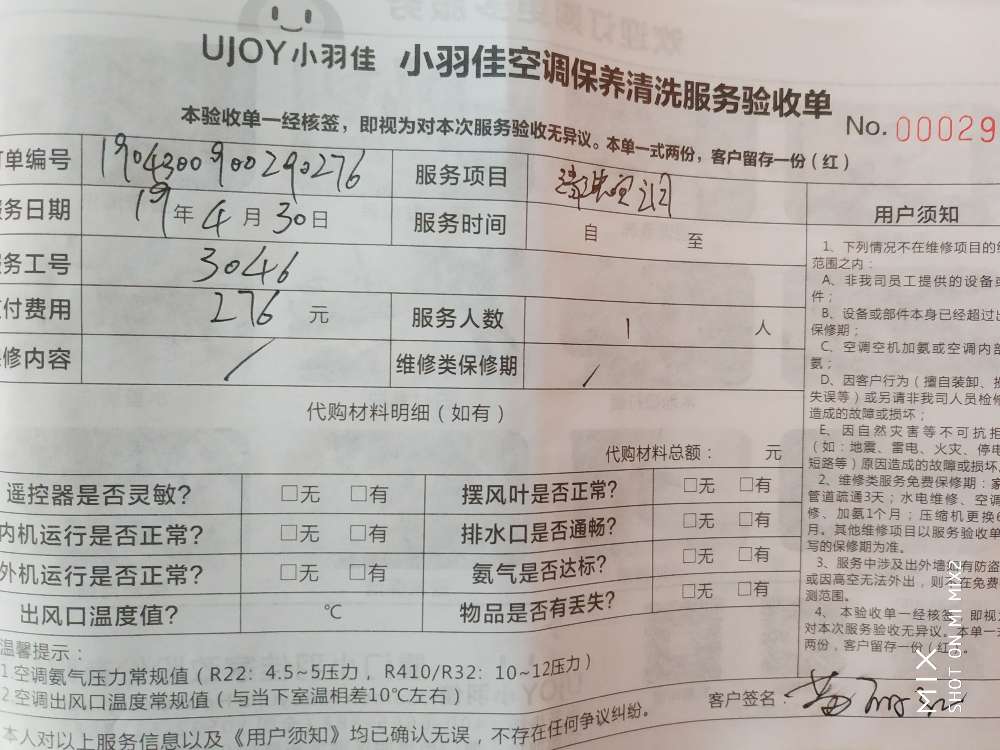 UJOY小羽佳 小羽佳空调保养清洗服务验收单
本验收单一经核签，即视为对本次服务验收无异议。本单一式两份，客户留存一份（红）
No. 00029
单编号 1904300900290276 服务项目
务日期 19年4月30日 服务时间 自 至
务工号 3046
付费用 276 元 服务人数 1 人
修内容 / 维修类保修期 /
代购材料明细（如有）
代购材料总额： 元
遥控器是否灵敏？ □无 □有 摆风叶是否正常？ □无 □有
内机运行是否正常？ □无 □有 排水口是否通畅？ □无 □有
外机运行是否正常？ □无 □有 氨气是否达标？ □无 □有
出风口温度值？ ℃ 物品是否有丢失？ □无 □有
温馨提示：
1.空调氨气压力常规值（R22：4.5~5压力，R410/R32：10~12压力）
2.空调出风口温度常规值（与当下室温相差10℃左右）
客户签名：
本人对以上服务信息以及《用户须知》均已确认无误，不存在任何争议纠纷。
用户须知
1、下列情况不在维修项目的
范围之内：
A、非我司员工提供的设备或
件；
B、设备或部件本身已经超过出
保修期；
C、空调空机加氨或空调内部
氨；
D、因客户行为（擅自装卸、
失误等）或另请非我司人员检修
造成的故障或损坏；
E、因自然灾害等不可抗拒
（如：地震、雷电、火灾、停电
短路等）原因造成的故障或损坏
2、维修类服务免费保修期：家
管道疏通3天；水电维修、空调
修、加氨1个月；压缩机更换6
月。其他维修项目以服务验收单
写的保修期为准。
3、服务中涉及出外墙 有防盗
或因高空无法外出，则 在免费
测范围。
4、本验收单一经核签，即视
对本次服务验收无异议。本单一式
两份，客户留存一份（红）。
MIX
SHOT ON MI MIX2